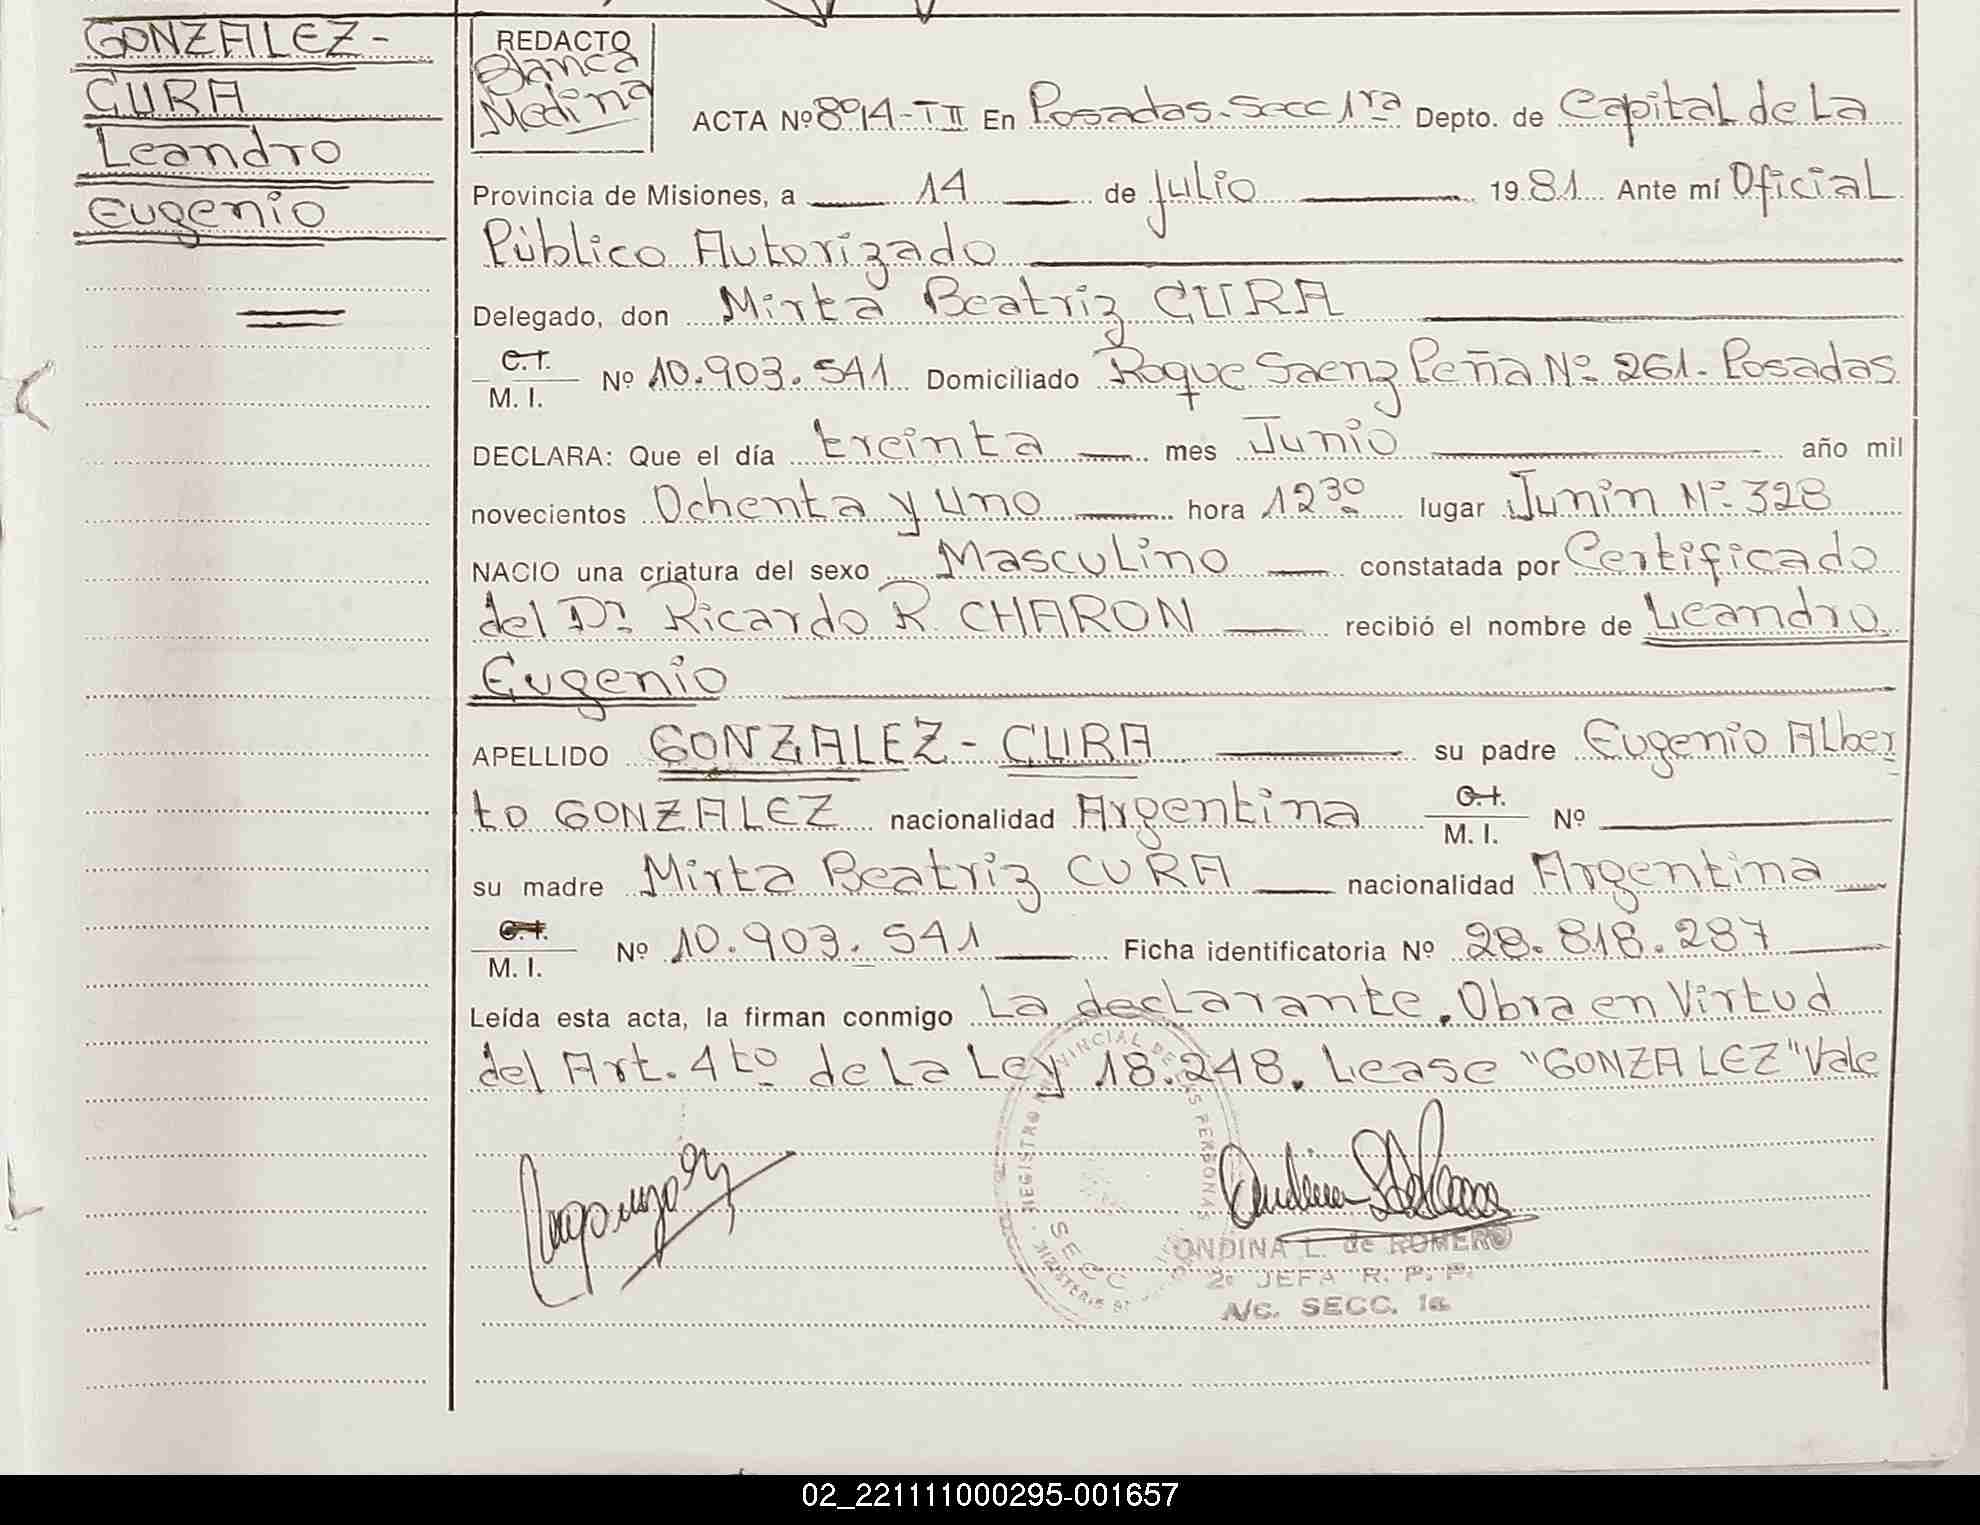 GONZALEZ-
CURA
Leandro
Eugenio
REDACTO
Blanca
Medina
ACTA Nº 8014-TII En Posadas-Secc 1ra Depto. de Capital de La
Provincia de Misiones, a 14 de Julio 1981 Ante mí Oficial
Público Autorizado
Delegado, don Mirta Beatriz CURA
C.I.
M. I. Nº 10.903.541 Domiciliado Roque Saenz Peña Nº 261- Posadas
DECLARA: Que el día treinta mes Junio año mil
novecientos Ochenta y uno hora 12 30 lugar Junin Nº 328
NACIO una criatura del sexo Masculino constatada por Certificado
del Dr. Ricardo R. CHARON recibió el nombre de Leandro
Eugenio
APELLIDO GONZALEZ - CURA su padre Eugenio Alber
to GONZALEZ nacionalidad Argentina C.I.
M. I. Nº
su madre Mirta Beatriz CURA nacionalidad Argentina
C.I.
M. I. Nº 10.903.541 Ficha identificatoria Nº 28.818.287
Leída esta acta, la firman conmigo La declarante. Obra en Virtud
del Art. 4to de La Ley 18.248. Lease "GONZALEZ" Vale
REGISTRO PROVINCIAL DE LAS PERSONAS
SECC
ONDINA L. de ROMERO
2º JEFA R. P. P.
A/C. SECC. 1a
02_221111000295-001657